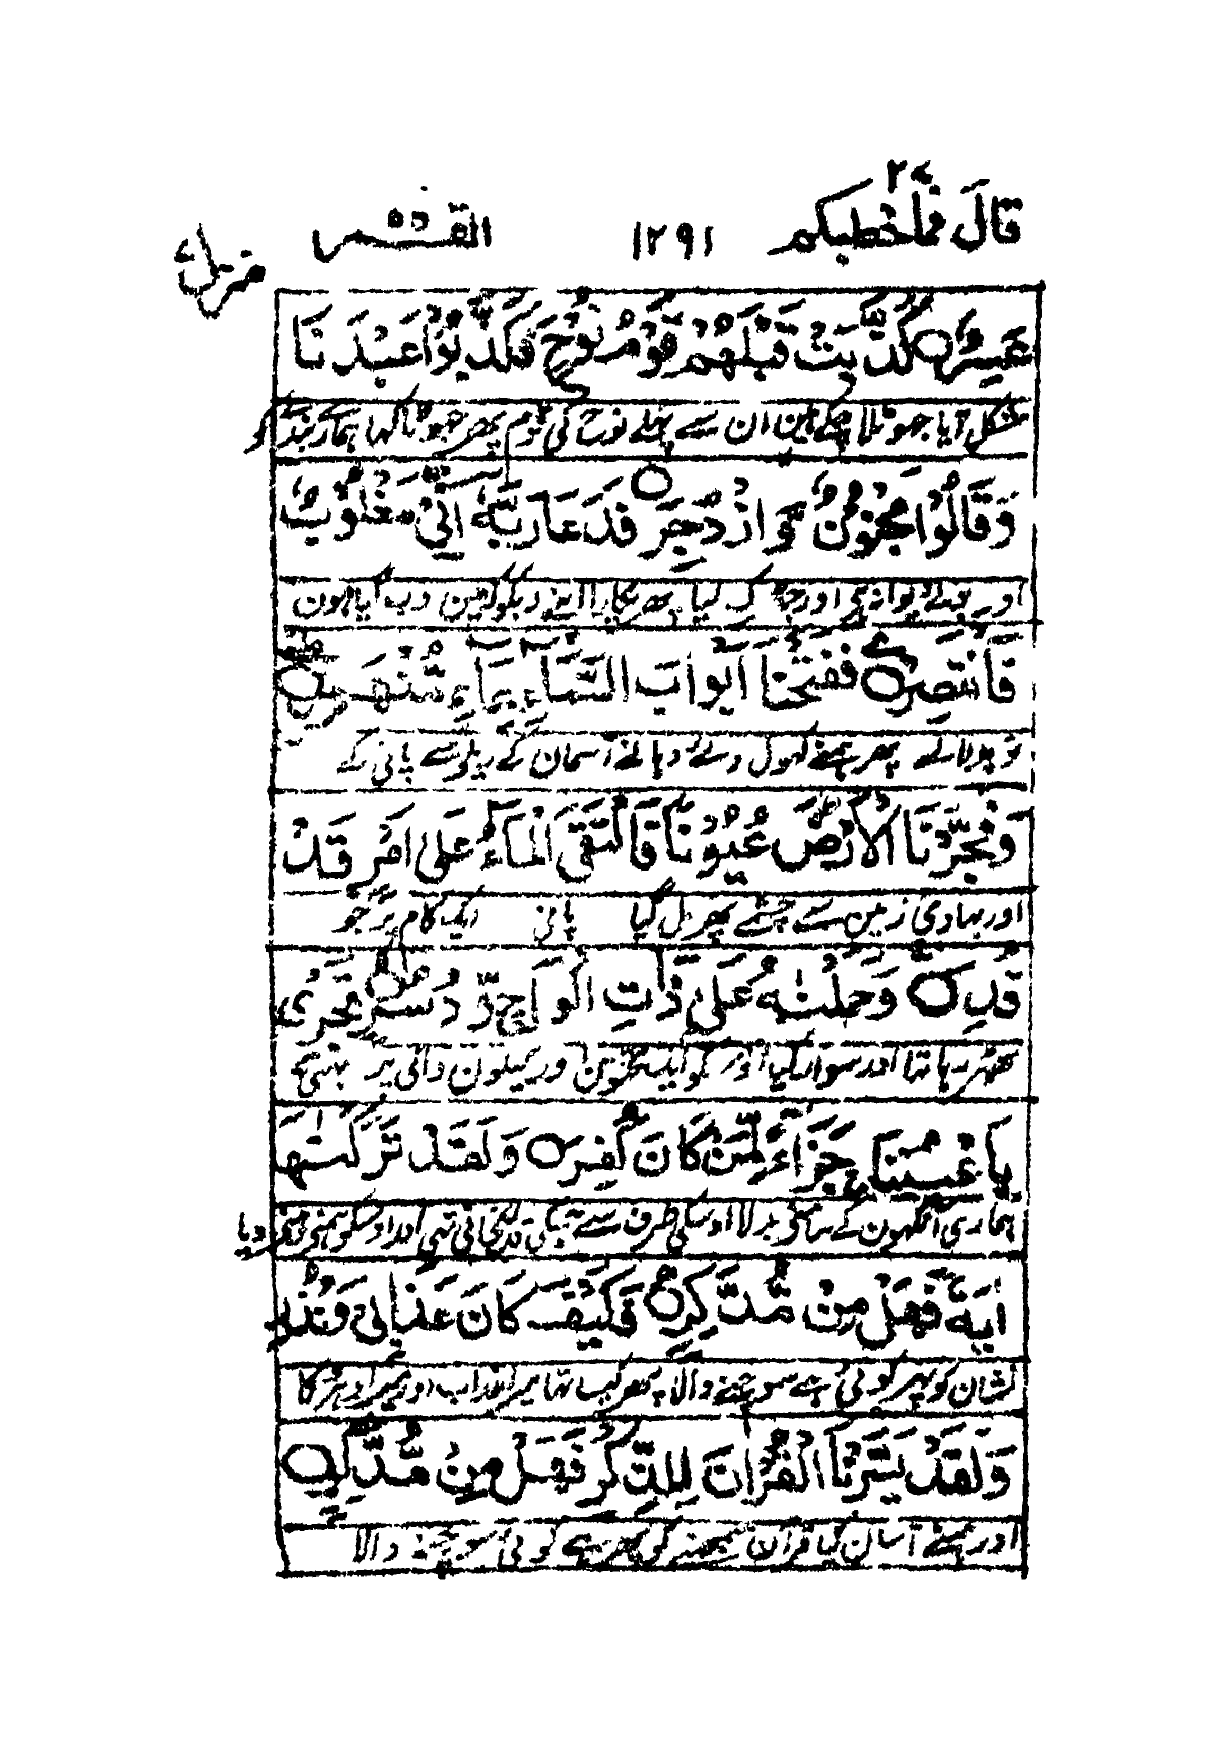 قال فما خطبكم ٢٧ ١٢٩١ القمر ٥٤
عَسِرٌ كَذَّبَتْ قَبْلَهُمْ قَوْمُ نُوحٍ فَكَذَّبُوا عَبْدَنَا
مشکل جھوٹلا چکے ہین ان سے پہلے نوح کی قوم پھر جھوٹا کہا ہمارے بندے کو
وَقَالُوا مَجْنُونٌ وَازْدُجِرَ فَدَعَا رَبَّهُ أَنِّي مَغْلُوبٌ
اور بولے دیوانہ ہی اور لیا پھر پکارا اپنے ربکو کہ مین دب گیا ہون
فَانْتَصِرْ فَفَتَحْنَا أَبْوَابَ السَّمَاءِ بِمَاءٍ مُنْهَمِرٍ
تو بدلا لے پھر ہمنے کھول دئے دہانے آسمان کے ریلے سے پانی کے
وَفَجَّرْنَا الْأَرْضَ عُيُونًا فَالْتَقَى الْمَاءُ عَلَى أَمْرٍ قَدْ
اور بہا دی زمین سے چشمے پھر مل گیا پانی ایک کام پر جو
قُدِرَ وَحَمَلْنٰهُ عَلَى ذَاتِ أَلْوَاحٍ وَدُسُرٍ تَجْرِي
ٹھہر رہا تھا اور سوار کیا ایک تختون اور کیلون والی پر بہتی
بِأَعْيُنِنَا جَزَاءً لِمَنْ كَانَ كُفِرَ وَلَقَدْ تَرَكْنٰهَا
ہماری آنکھون کے سامنے بدلا اوسکی طرف سے جسکی قدر نجانی تھی اور اوسکو ہمنے رہنے دیا
آيَةً فَهَلْ مِنْ مُدَّكِرٍ فَكَيْفَ كَانَ عَذَابِي وَنُذُرِ
نشان کو پھر کوئی ہے سوچنے والا پھر کیسا تھا میرا عذاب اور میرا ڈر کا
وَلَقَدْ يَسَّرْنَا الْقُرْآنَ لِلذِّكْرِ فَهَلْ مِنْ مُدَّكِرٍ
اور ہمنے آسان کیا قرآن سمجھنے کو پھر ہے کوئی سوچنے والا